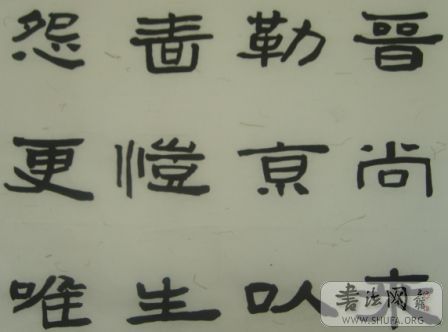 晉尚
勒京以
嗇愷生
怨更唯
書法网
WWW.SHUFA.ORG